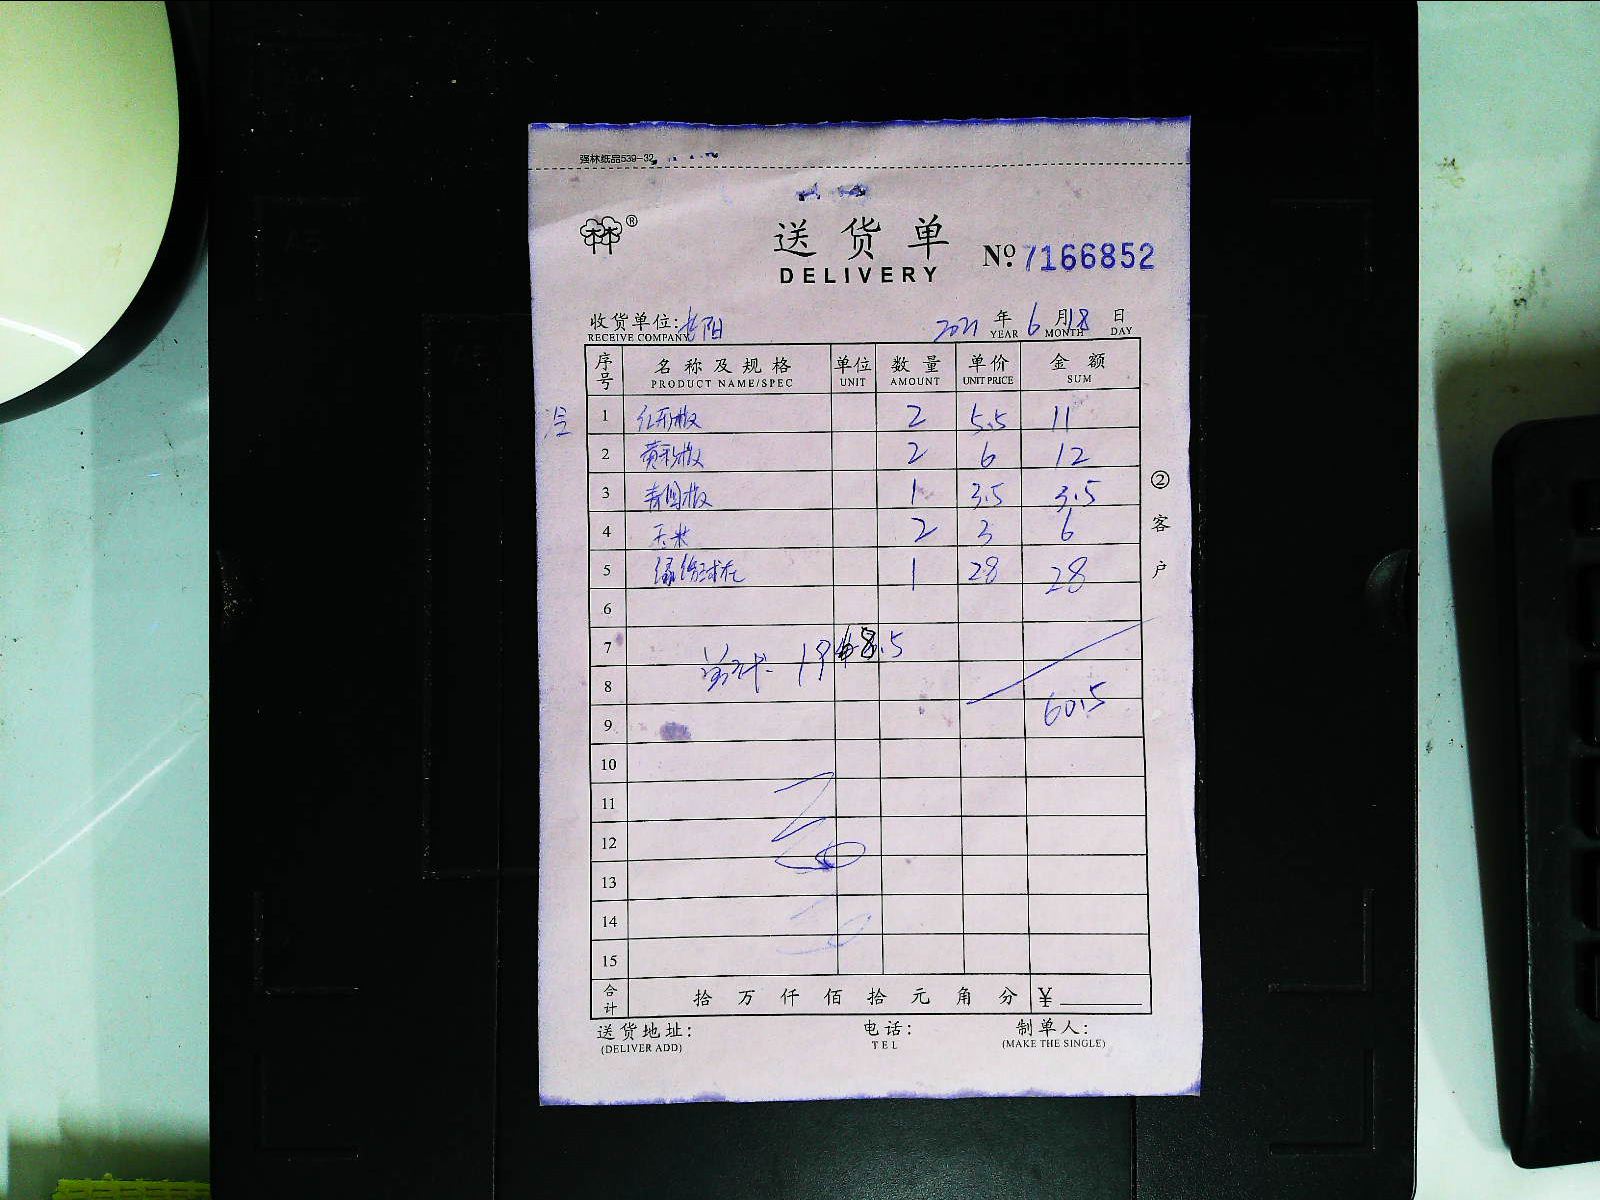 强林纸品539-32
林林®
送货单
DELIVERY
No. 7166852
收货单位:
RECEIVE COMPANY
2021 年 6 月 18 日
YEAR MONTH DAY
序号 名称及规格 单位 数量 单价 金额
PRODUCT NAME/SPEC UNIT AMOUNT UNIT PRICE SUM
1 红形椒 2 5.5 11
2 黄彩椒 2 6 12
3 青圆椒 1 3.5 3.5
4 玉米 2 3 6
5 1 28 28
6
7
8
60.5
9
10
11
12
13
14
15
合计 拾 万 仟 佰 拾 元 角 分 ¥
送货地址: 电话: 制单人:
(DELIVER ADD) TEL (MAKE THE SINGLE)
②客户